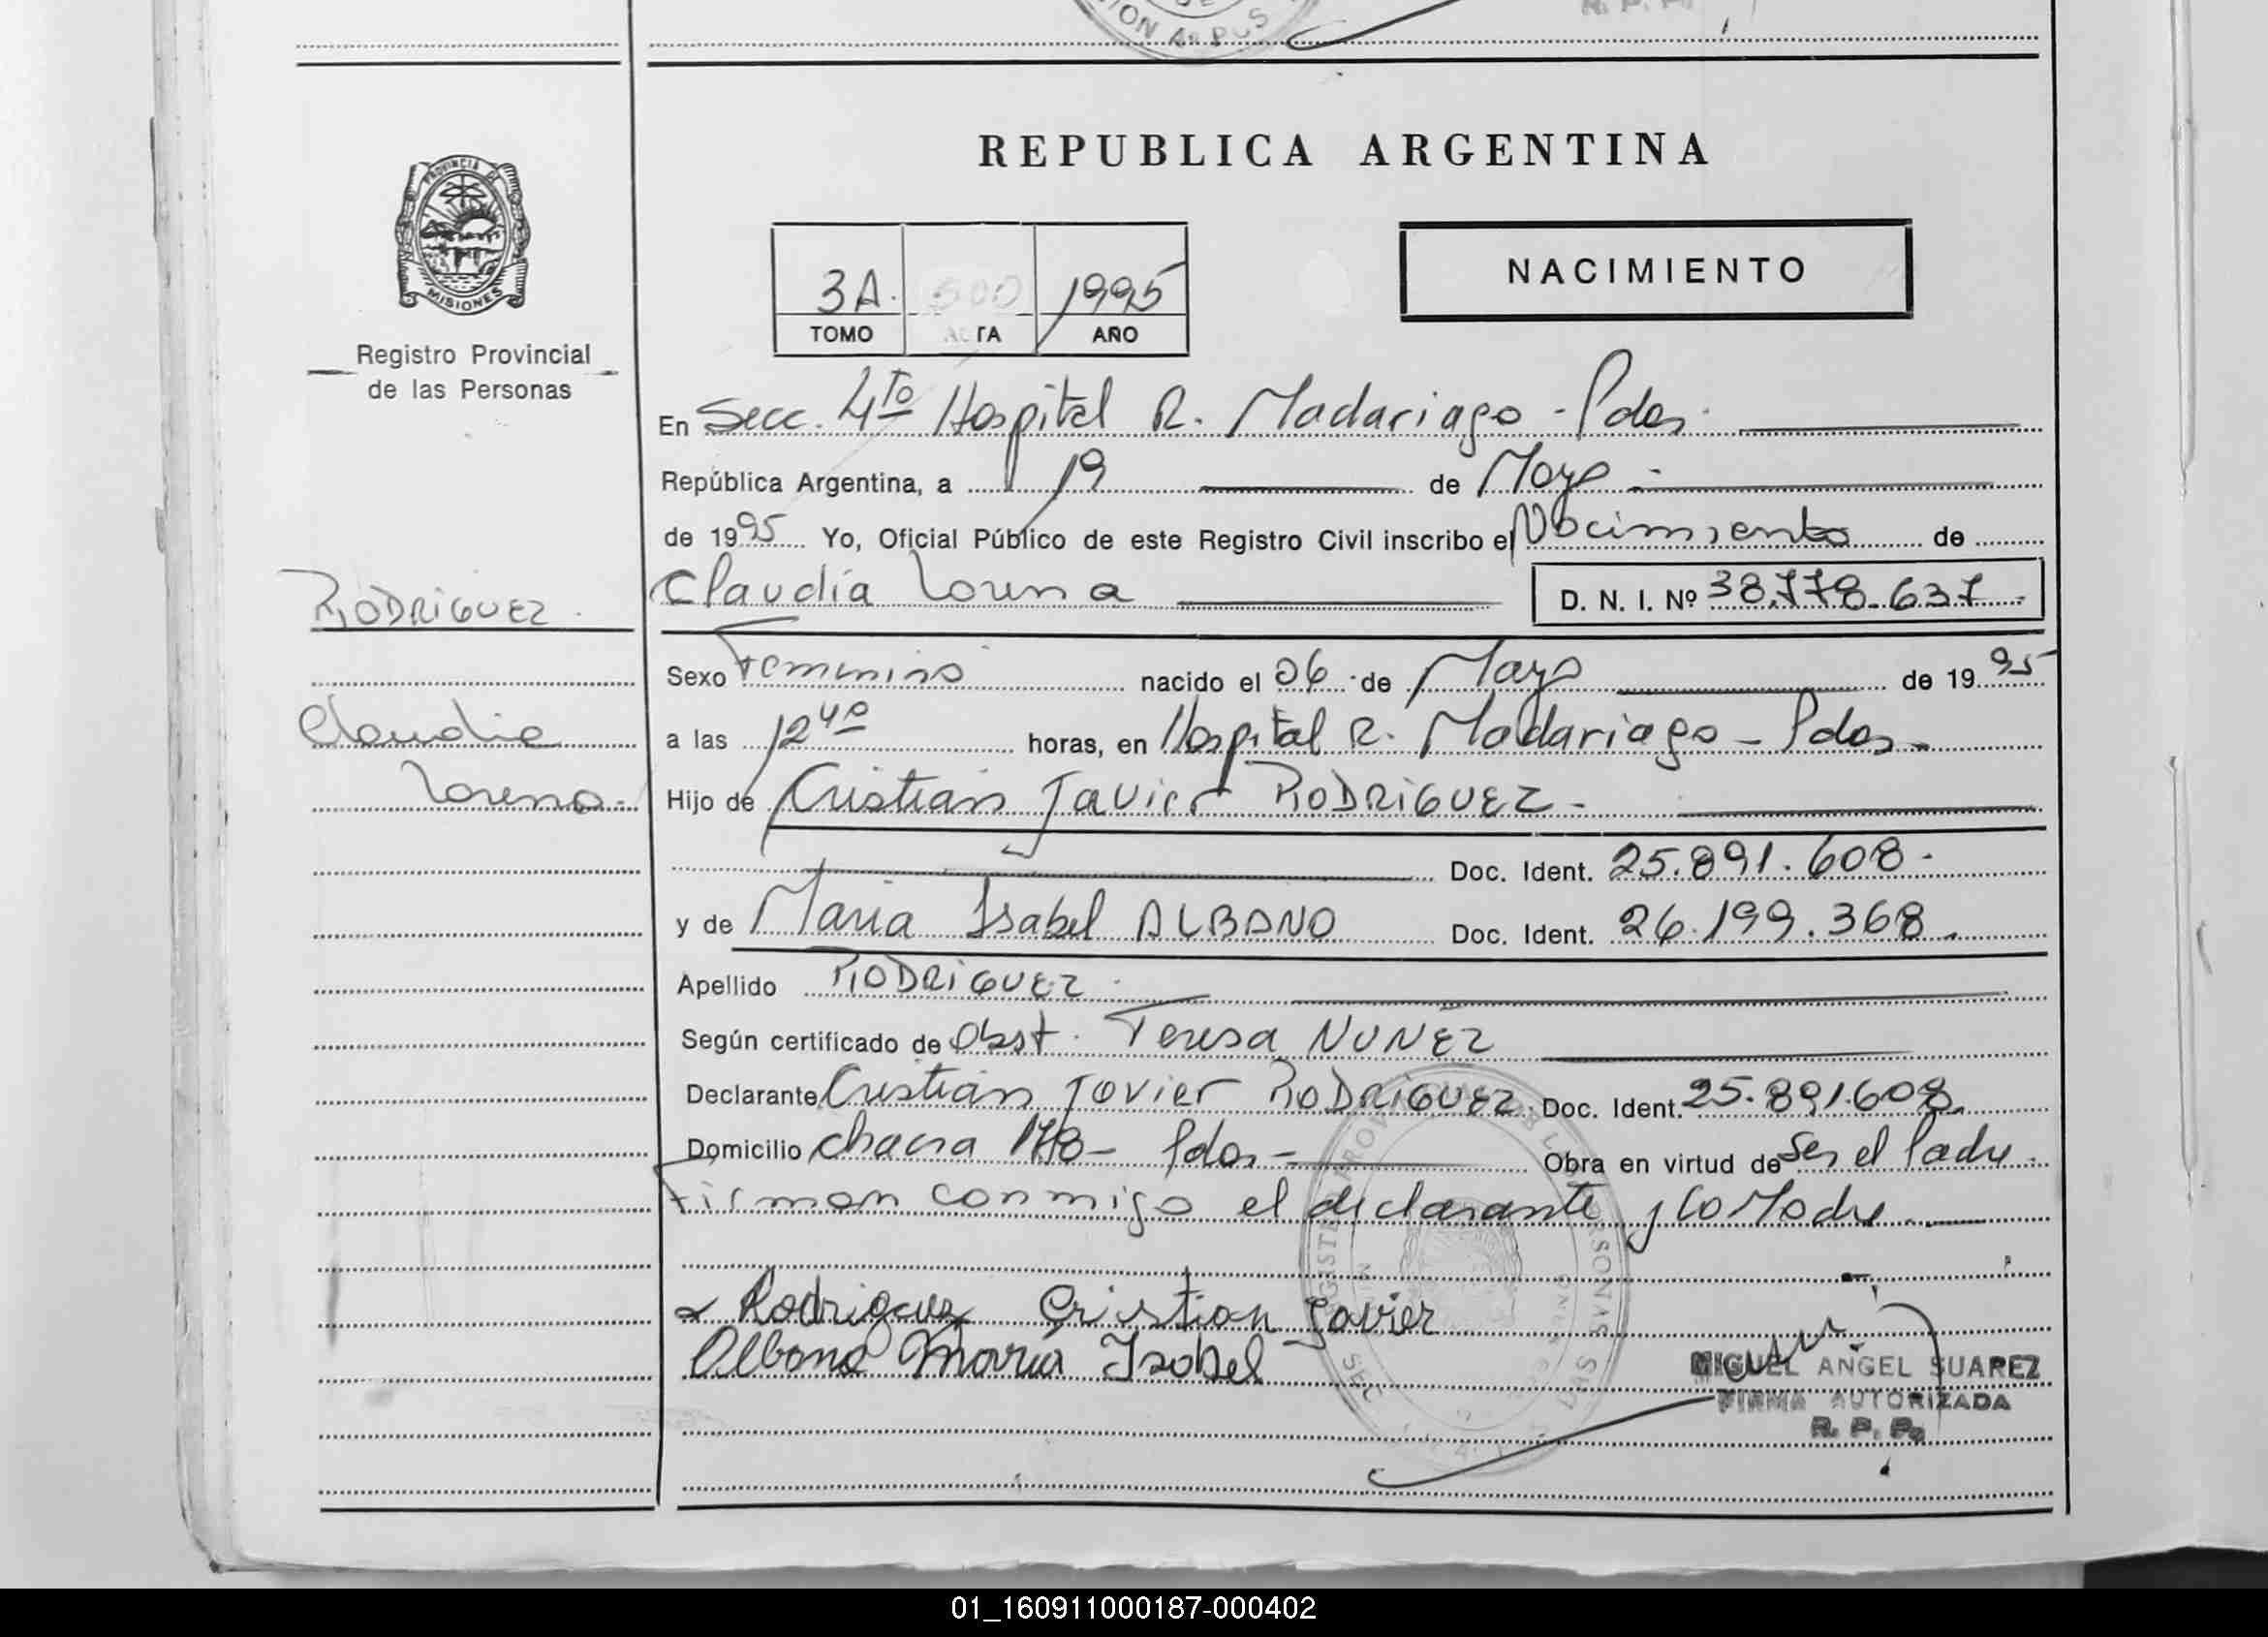 REPUBLICA ARGENTINA
PROVINCIA DE
MISIONES
Registro Provincial
de las Personas
3A. 500 1995
TOMO ACTA AÑO
NACIMIENTO
En Secc. 4TO Hospital R. Madariaga - Pdas.
República Argentina, a 19 de Mayo -
de 1995 Yo, Oficial Público de este Registro Civil inscribo el Nacimiento de
Claudia Lorena D. N. I. Nº 38.778.637 -
RODRIGUEZ.
Claudia
Lorena.
Sexo Femenino nacido el 06 de Mayo de 1995
a las 12 40 horas, en Hospital R. Madariaga - Pdas -
Hijo de Cristian Javier RODRIGUEZ -
Doc. Ident. 25.891.608 -
y de Maria Isabel ALBANO Doc. Ident. 26.199.368 -
Apellido RODRIGUEZ.
Según certificado de Obst. Teresa NUÑEZ
Declarante Cristian Javier RODRIGUEZ. Doc. Ident. 25.891.608.
Domicilio chacra 178 - Pdas - Obra en virtud de Ser el Padre.
Firman conmigo el declarante y la Madre
Rodriguez Cristian Javier
Albano María Isabel
MIGUEL ANGEL SUAREZ
FIRMA AUTORIZADA
R. P. P.
01_160911000187-000402